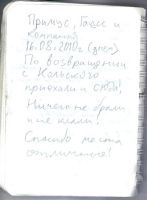 Примус, Гаусс и
Компания
16.08.2010г (днем)
По возвращении
с Конского
приехали и сюда!
Ничего не брали
и не клали!
Спасибо места
отличные!